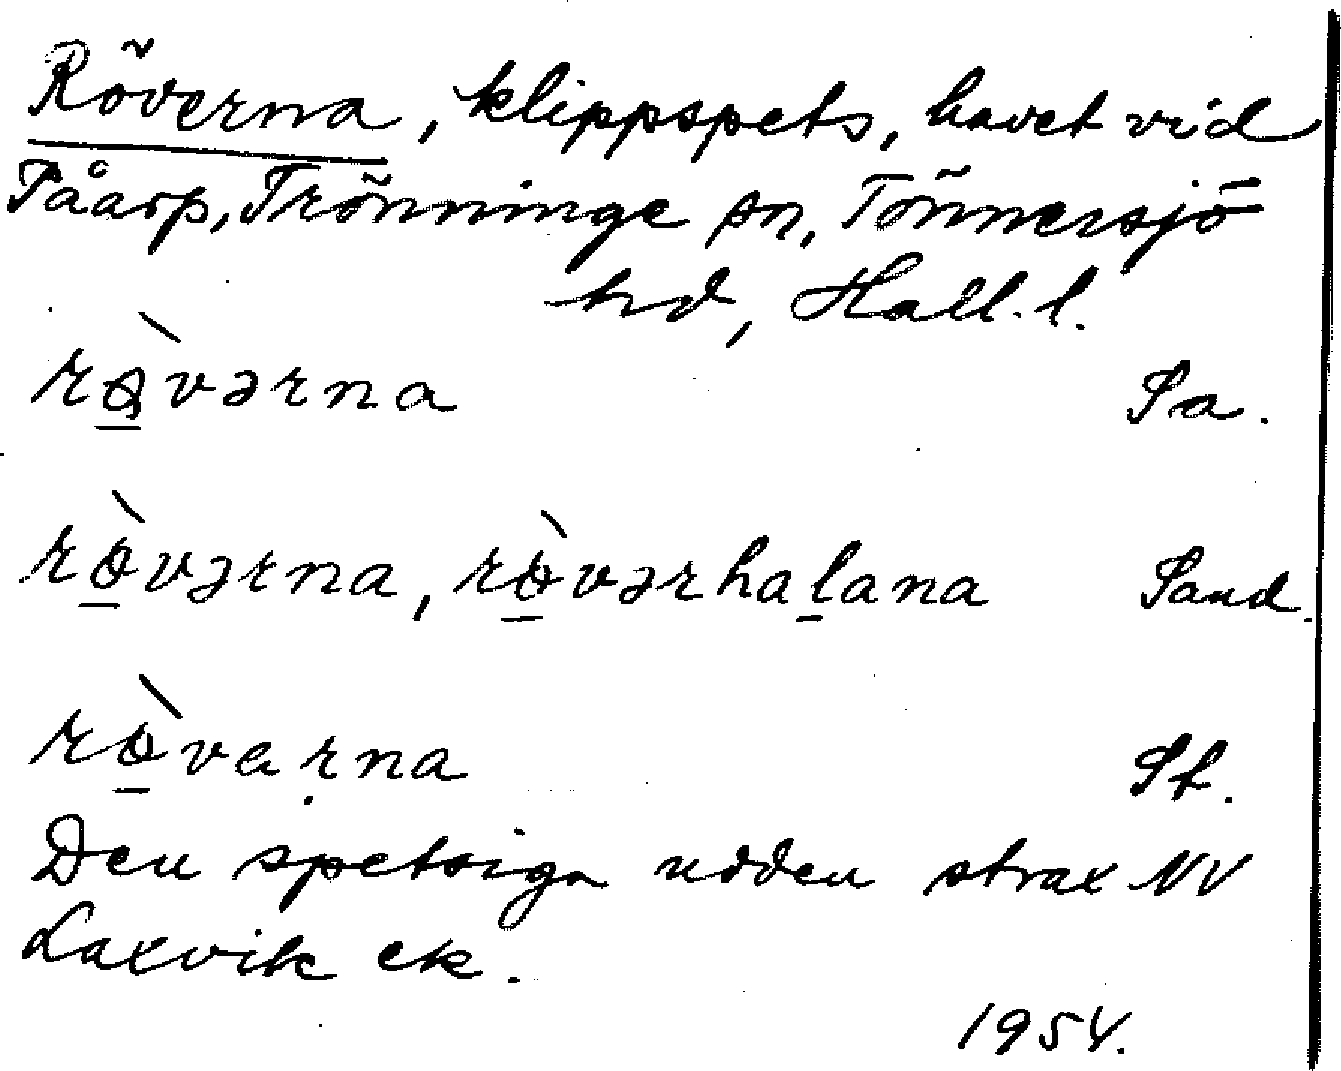 Röverna, klippspets, havet vid
Påarp, Trönninge sn, Tönnersjö
hd, Hall. l.
rø̀vərna Pa.
rø̀vərna, rø̀vərhaḻana Sand.
rø̀vaṛna St.
Den spetsiga udden strax NV
Laxvik ek.
1954.